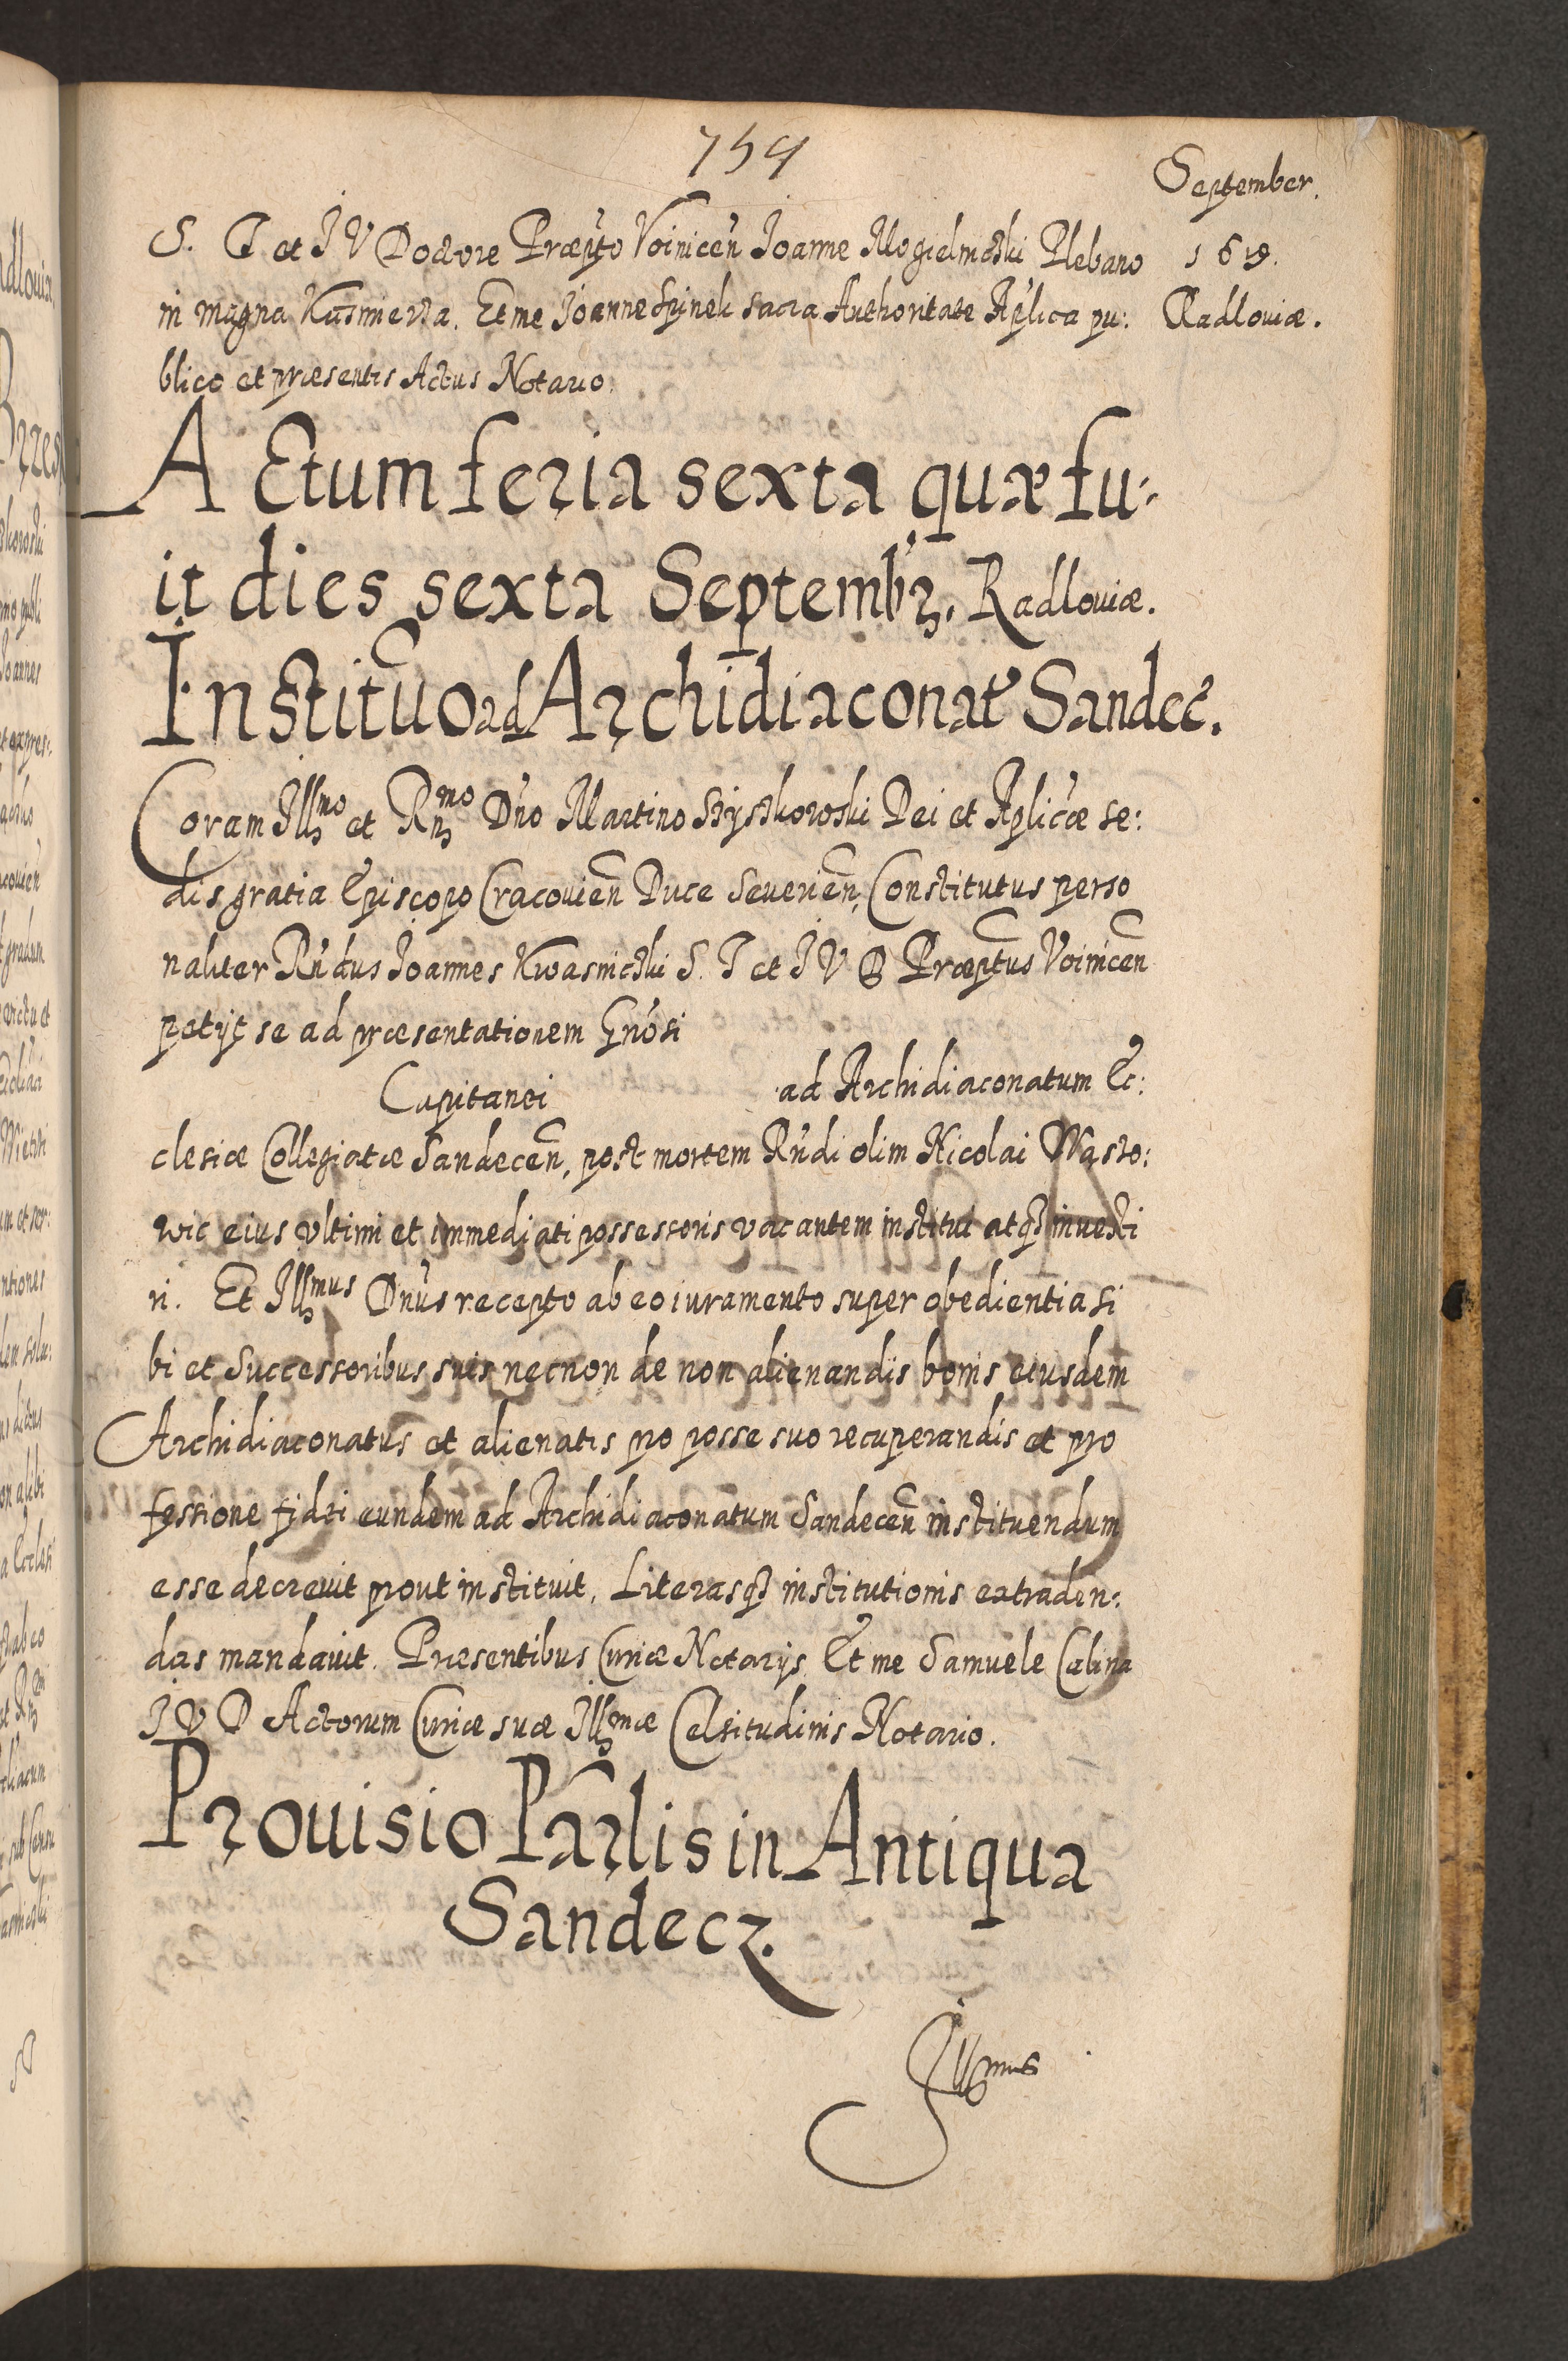 759
September.
1619.
Radlouiæ.
S. T et I V Doctore Præpto Voinicen Ioanne Mogielnicski Plebano
in magna Kasmierza. Et me Ioanne Spinek sacra Authoritate Aplica pu:
blico et præsentis Actus Notario.
Actum feria sexta quæ fu:
it dies sexta Septembr. Radlouiæ.
Institutio ad Archidiaconat Sandec.
Coram Illmo et Rmo Dno Martino Szyszkowski Dei et Aplicæ se:
dis gratia Episcopo Cracouien Duce Seuerien, Constitutus perso
naliter Rndus Ioannes Kwasnicski S. T et I V D Præptus Voinicen
petijt se ad præsentationem Gnosi
Capitanei ad Archidiaconatum Ec:
clesiæ Collegiatæ Sandecen, post mortem Rndi olim Nicolai Wasso:
wic eius vltimi et immediati possessoris vacantem institui atq3 inuesti
ri. Et Illmus Dnus recepto ab eo iuramento super obedientia si
bi et Successoribus suis necnon de non alienandis bonis eiusdem
Archidiaconatus et alienatis pro posse suo recuperandis et pro
fessione fidei eundem ad Archidiaconatum Sandecen instituendum
esse decreuit prout instituit, Literasq3 institutionis extraden:
das mandauit. Præsentibus Curiæ Notarijs Et me Samuele Calina
I V D Actorum Curiæ suæ Illmæ Celsitudinis Notario.
Prouisio Parlis in Antiqua
Sandecz.
Illmus